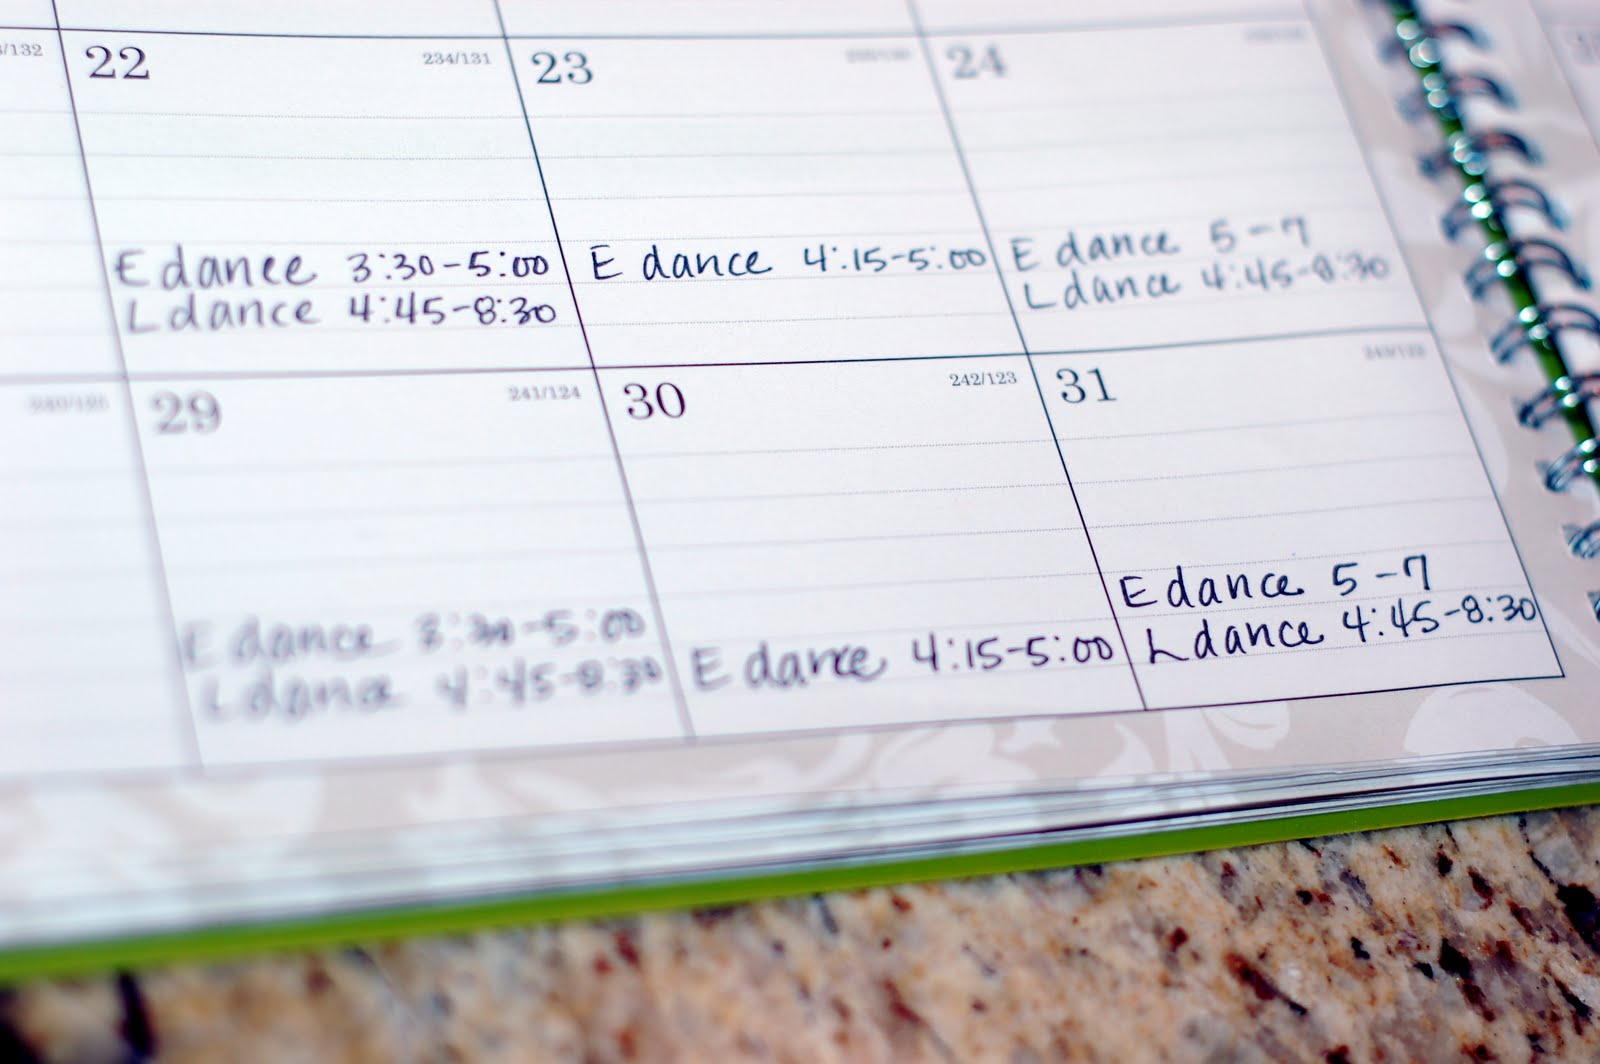 /132
22 234/131
23
24
E dance 3:30-5:00
L dance 4:45-8:30
E dance 4:15-5:00
E dance 5-7
L dance 4:45-8:30
29 241/124
30 242/123
31
E dance 3:30-5:00
L dance 4:45-8:30
E dance 4:15-5:00
E dance 5-7
L dance 4:45-8:30